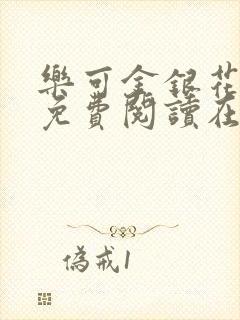 樂可金銀花
免費閱讀在
偽戒1